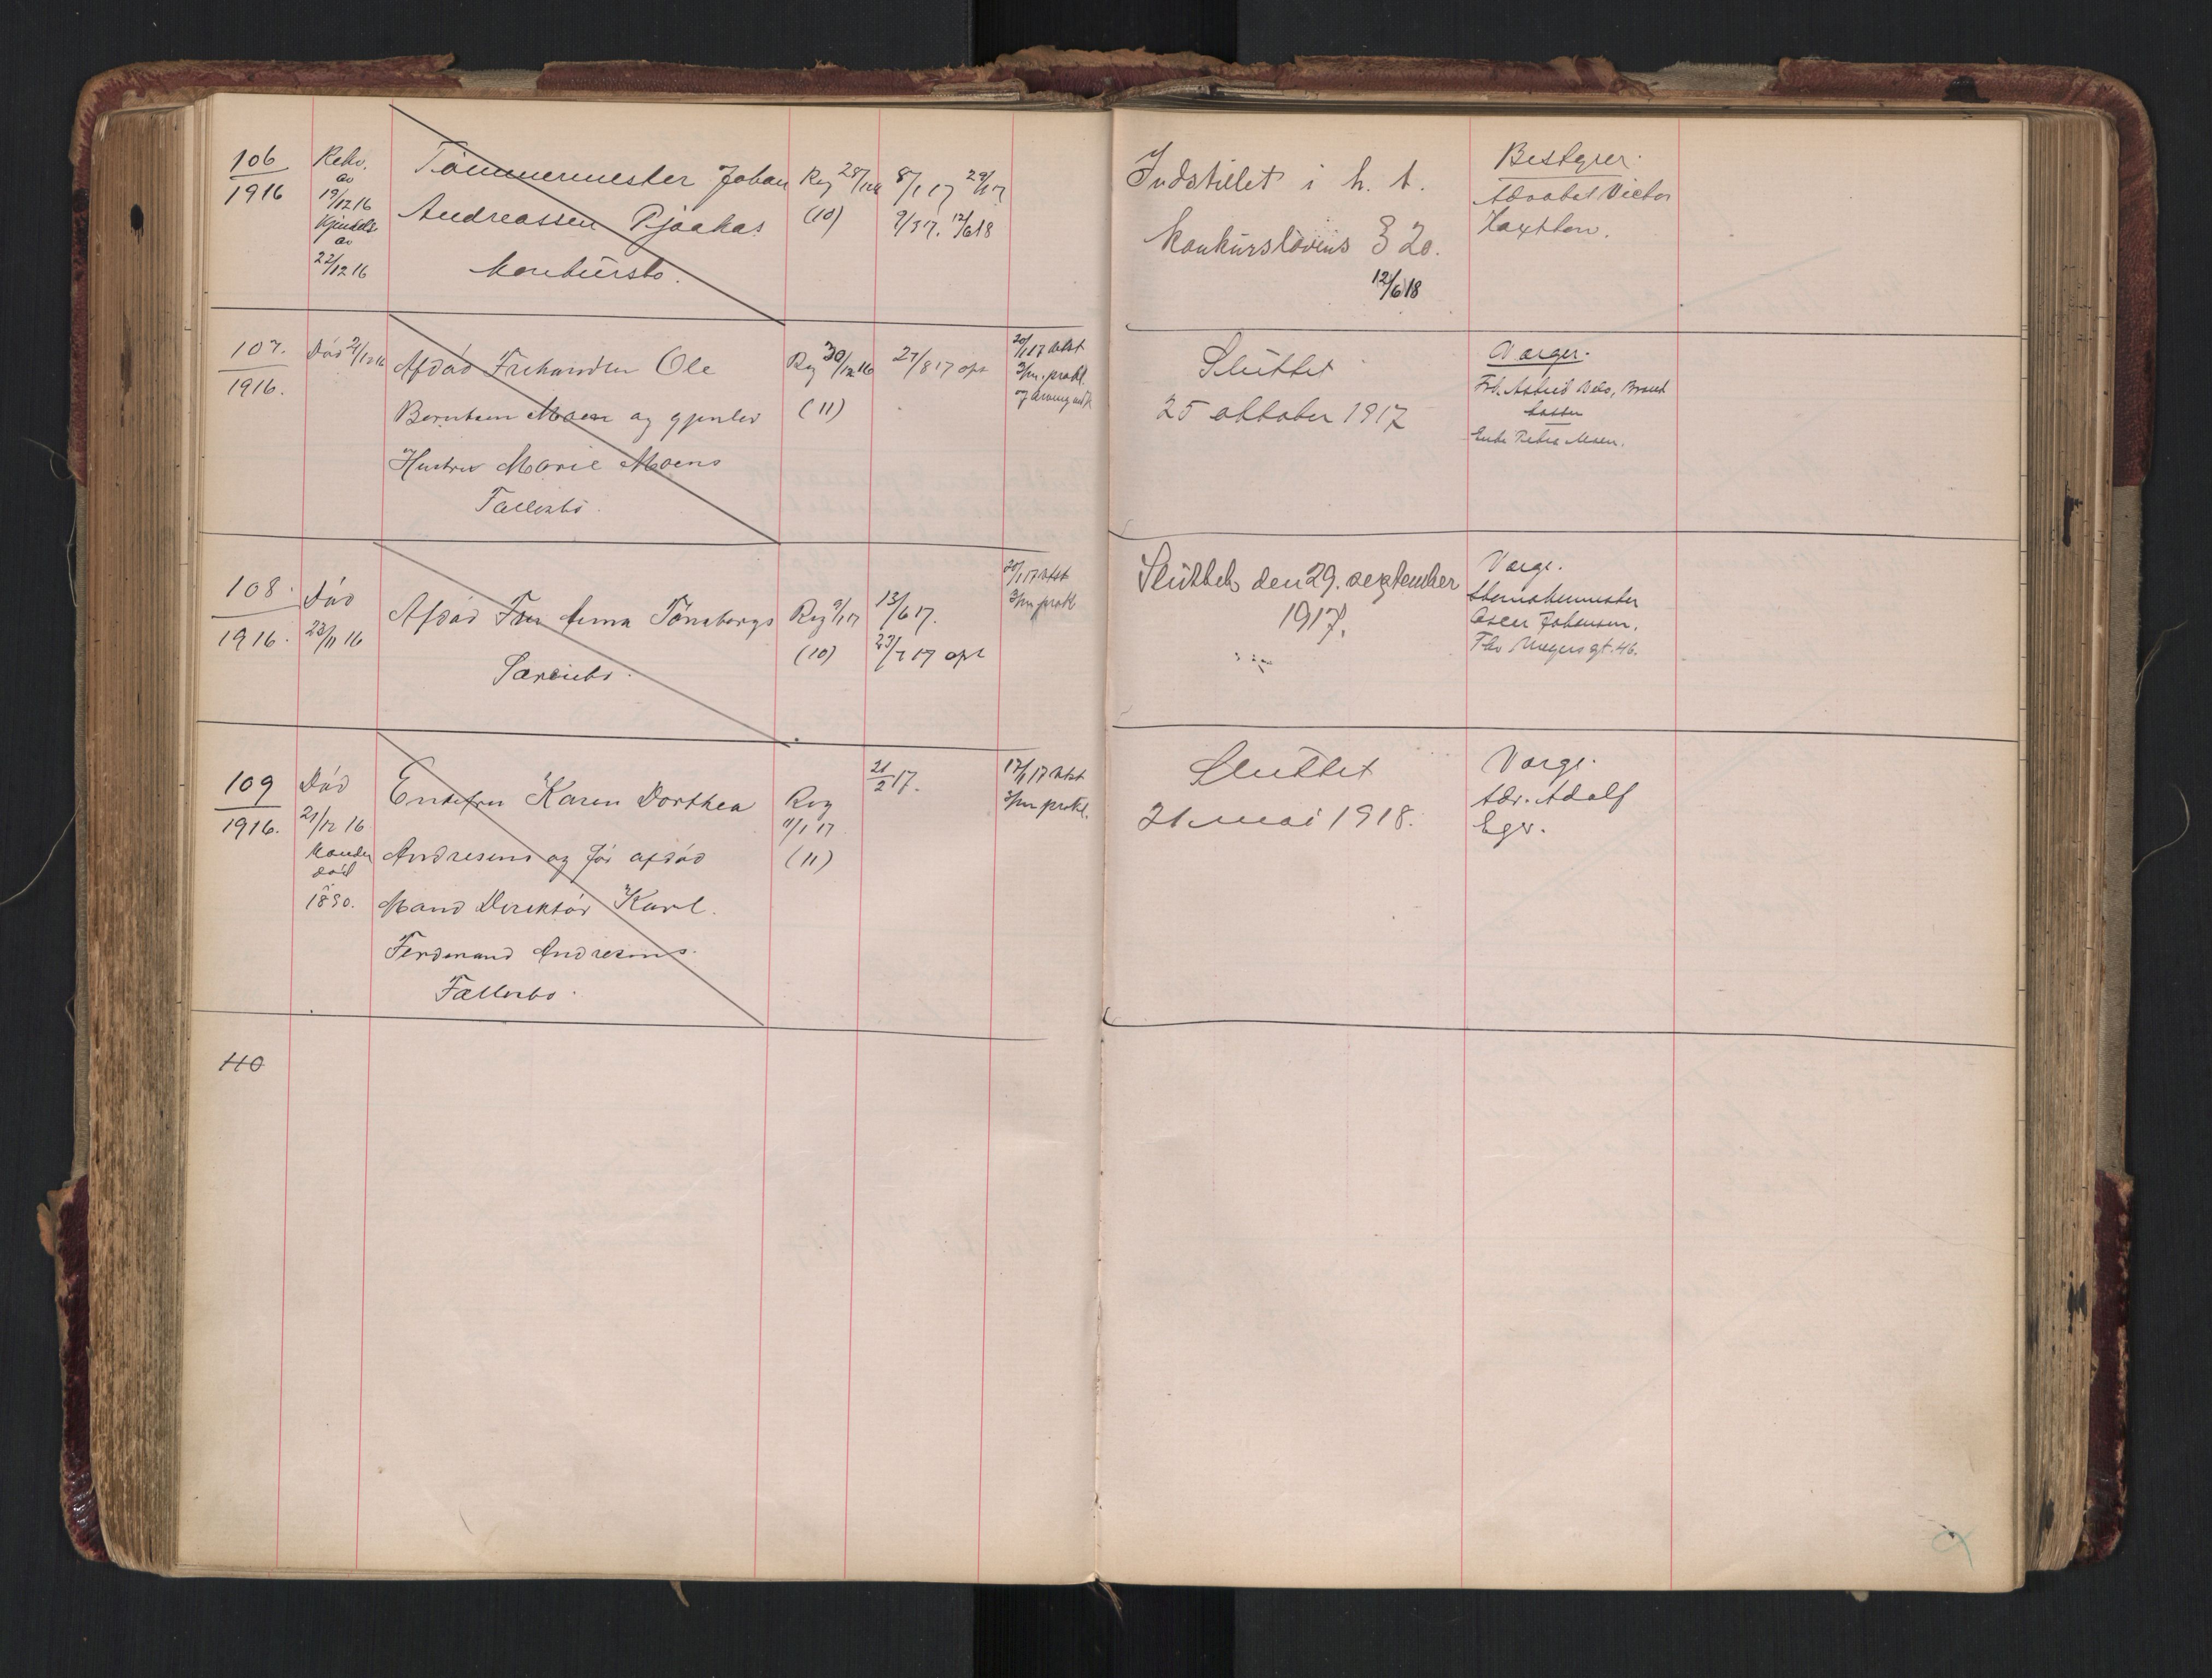 106
1916
Rekv.
av
19/12 16
Kjendels
av
22/12 16
Tömmermester Johan
Andreassen
Konkursbo.
Reg 28/12 16
(10)
8/1 17
12/6 18
Indstillet i h. t.
Konkurslovens § 20.
12/6 18
Bestyrer.
Advokat Victor
107.
1916.
Död
Afdöd Ole
Berntsen Moen og gjenlev
Hustru Marie Moens
Fællesbo.
Reg 30/12 16
(11)
27/8 17 opt
20/1 17 utst
3/m. prokl.
Sluttet
25 oktober 1917
Værger.
Frk. Astrid
Enke Petra Moen.
108.
1916.
Död
23/11 16
Afdöd Fru Anna Tönsbergs
Særeiebo.
Reg 9/1 17
(10)
13/6 17.
23/7 17 opt
20/1 17 utst
3/m prokl
Sluttet den 29. september
1917.
Værge.
Oscar Johansen.
Ths Meyers gt. 46.
109
1916.
Död
21/12 16
Manden
död
1890.
Enkefru Karen Dorthea
Andresens og för afdöd
Mand Direktör Karl
Ferdinand Andresens
Fællesbo.
Reg
11/1 17
(11)
21/2 17.
17/1 17 utst
3/m prokl.
Sluttet
21 mai 1918.
Værge.
Adv. Adolf
Eger.
110